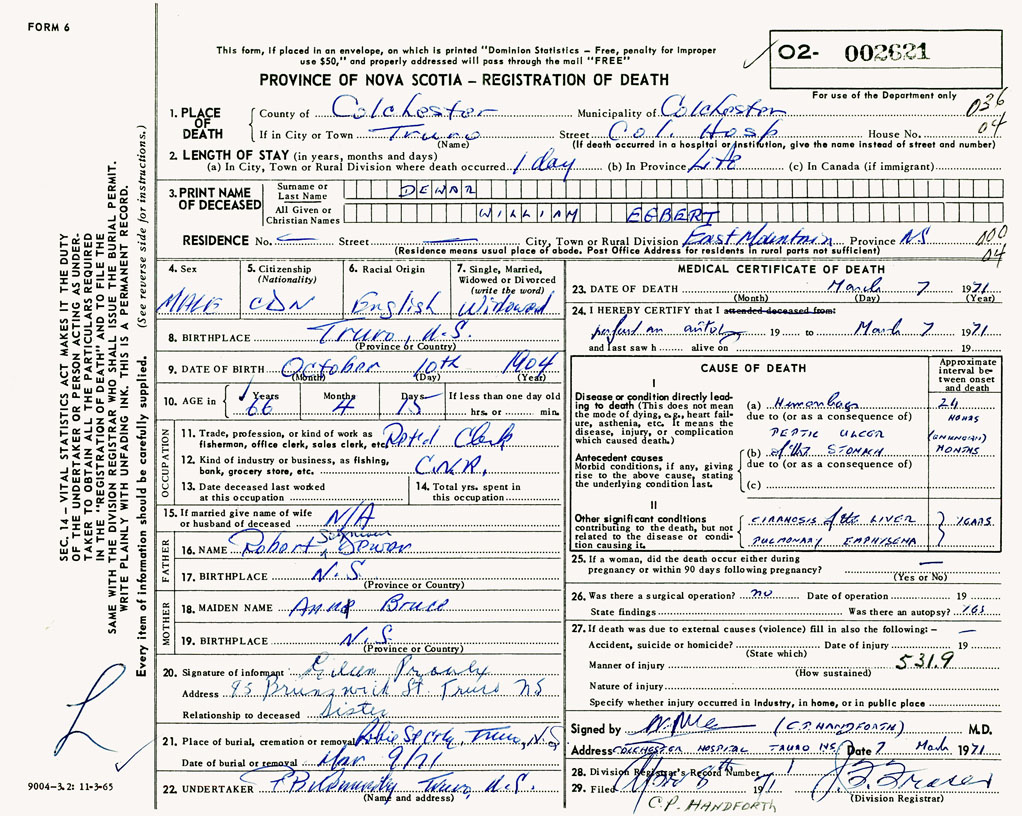 FORM 6
This form, if placed in an envelope, on which is printed "Dominion Statistics – Free, penalty for improper
use $50," and properly addressed will pass through the mail "FREE"
PROVINCE OF NOVA SCOTIA – REGISTRATION OF DEATH
O2- 002621
For use of the Department only
036
04
1. PLACE OF DEATH
County of Colchester Municipality of Colchester
If in City or Town Truro Street Col. Hosp House No.
(Name) (If death occurred in a hospital or institution, give the name instead of street and number)
2. LENGTH OF STAY (in years, months and days)
(a) In City, Town or Rural Division where death occurred 1 day (b) In Province Life (c) In Canada (if immigrant)
3. PRINT NAME OF DECEASED
Surname or Last Name DEWAR
All Given or Christian Names WILLIAM EGBERT
RESIDENCE No. Street City, Town or Rural Division East Mountain Province NS
(Residence means usual place of abode. Post Office Address for residents in rural parts not sufficient)
000
04
4. Sex MALE
5. Citizenship (Nationality) CDN
6. Racial Origin English
7. Single, Married, Widowed or Divorced (write the word) Widowed
8. BIRTHPLACE Truro, N.S.
(Province or Country)
9. DATE OF BIRTH October 10th 1904
(Month) (Day) (Year)
10. AGE in Years 66 Months 4 Days If less than one day old
hrs. or min.
OCCUPATION
11. Trade, profession, or kind of work as fisherman, office clerk, sales clerk, etc. Clerk
12. Kind of industry or business, as fishing, bank, grocery store, etc. C.N.R.
13. Date deceased last worked at this occupation
14. Total yrs. spent in this occupation
15. If married give name of wife or husband of deceased N/A
FATHER
16. NAME Robert Seymour Dewar
17. BIRTHPLACE N.S.
(Province or Country)
MOTHER
18. MAIDEN NAME Anna Bruce
19. BIRTHPLACE N.S.
(Province or Country)
20. Signature of informant
Address 95 Brunswick St. Truro NS
Relationship to deceased Sister
21. Place of burial, cremation or removal Truro, N.S.
Date of burial or removal Mar 9/71
22. UNDERTAKER Truro, N.S.
(Name and address)
MEDICAL CERTIFICATE OF DEATH
23. DATE OF DEATH March 7 1971
(Month) (Day) (Year)
24. I HEREBY CERTIFY that I attended deceased from:
19 to March 7 1971
and last saw h alive on 19
CAUSE OF DEATH
Approximate interval between onset and death
I
Disease or condition directly leading to death (This does not mean the mode of dying, e.g., heart failure, asthenia, etc. It means the disease, injury, or complication which caused death.)
(a) Hemorrhage 24 HOURS
due to (or as a consequence of)
PEPTIC ULCER (UNKNOWN)
(b) of the STOMACH MONTHS
Antecedent causes
Morbid conditions, if any, giving rise to the above cause, stating the underlying condition last.
due to (or as a consequence of)
(c)
II
Other significant conditions contributing to the death, but not related to the disease or condition causing it.
CIRRHOSIS of the LIVER
PULMONARY EMPHYSEMA
YEARS
25. If a woman, did the death occur either during
pregnancy or within 90 days following pregnancy? —
(Yes or No)
26. Was there a surgical operation? no Date of operation 19
State findings Was there an autopsy? YES
27. If death was due to external causes (violence) fill in also the following: – —
Accident, suicide or homicide? Date of injury 19
(State which)
Manner of injury 531.9
(How sustained)
Nature of injury
Specify whether injury occurred in industry, in home, or in public place
Signed by (C.P. HANDFORTH) M.D.
Address COLCHESTER HOSPITAL TRURO NS Date 7 March 1971
28. Division Registrar's Record Number
29. Filed 1971
C.P. HANDFORTH
(Division Registrar)
SEC. 14 – VITAL STATISTICS ACT MAKES IT THE DUTY
OF THE UNDERTAKER OR PERSON ACTING AS UNDER-
TAKER TO OBTAIN ALL THE PARTICULARS REQUIRED
IN THE "REGISTRATION OF DEATH" AND TO FILE THE
SAME WITH THE DIVISION REGISTRAR WHO SHALL ISSUE THE BURIAL PERMIT.
WRITE PLAINLY WITH UNFADING INK. THIS IS A PERMANENT RECORD.
Every item of information should be carefully supplied. (See reverse side for instructions.)
9004-3.2: 11-3-65